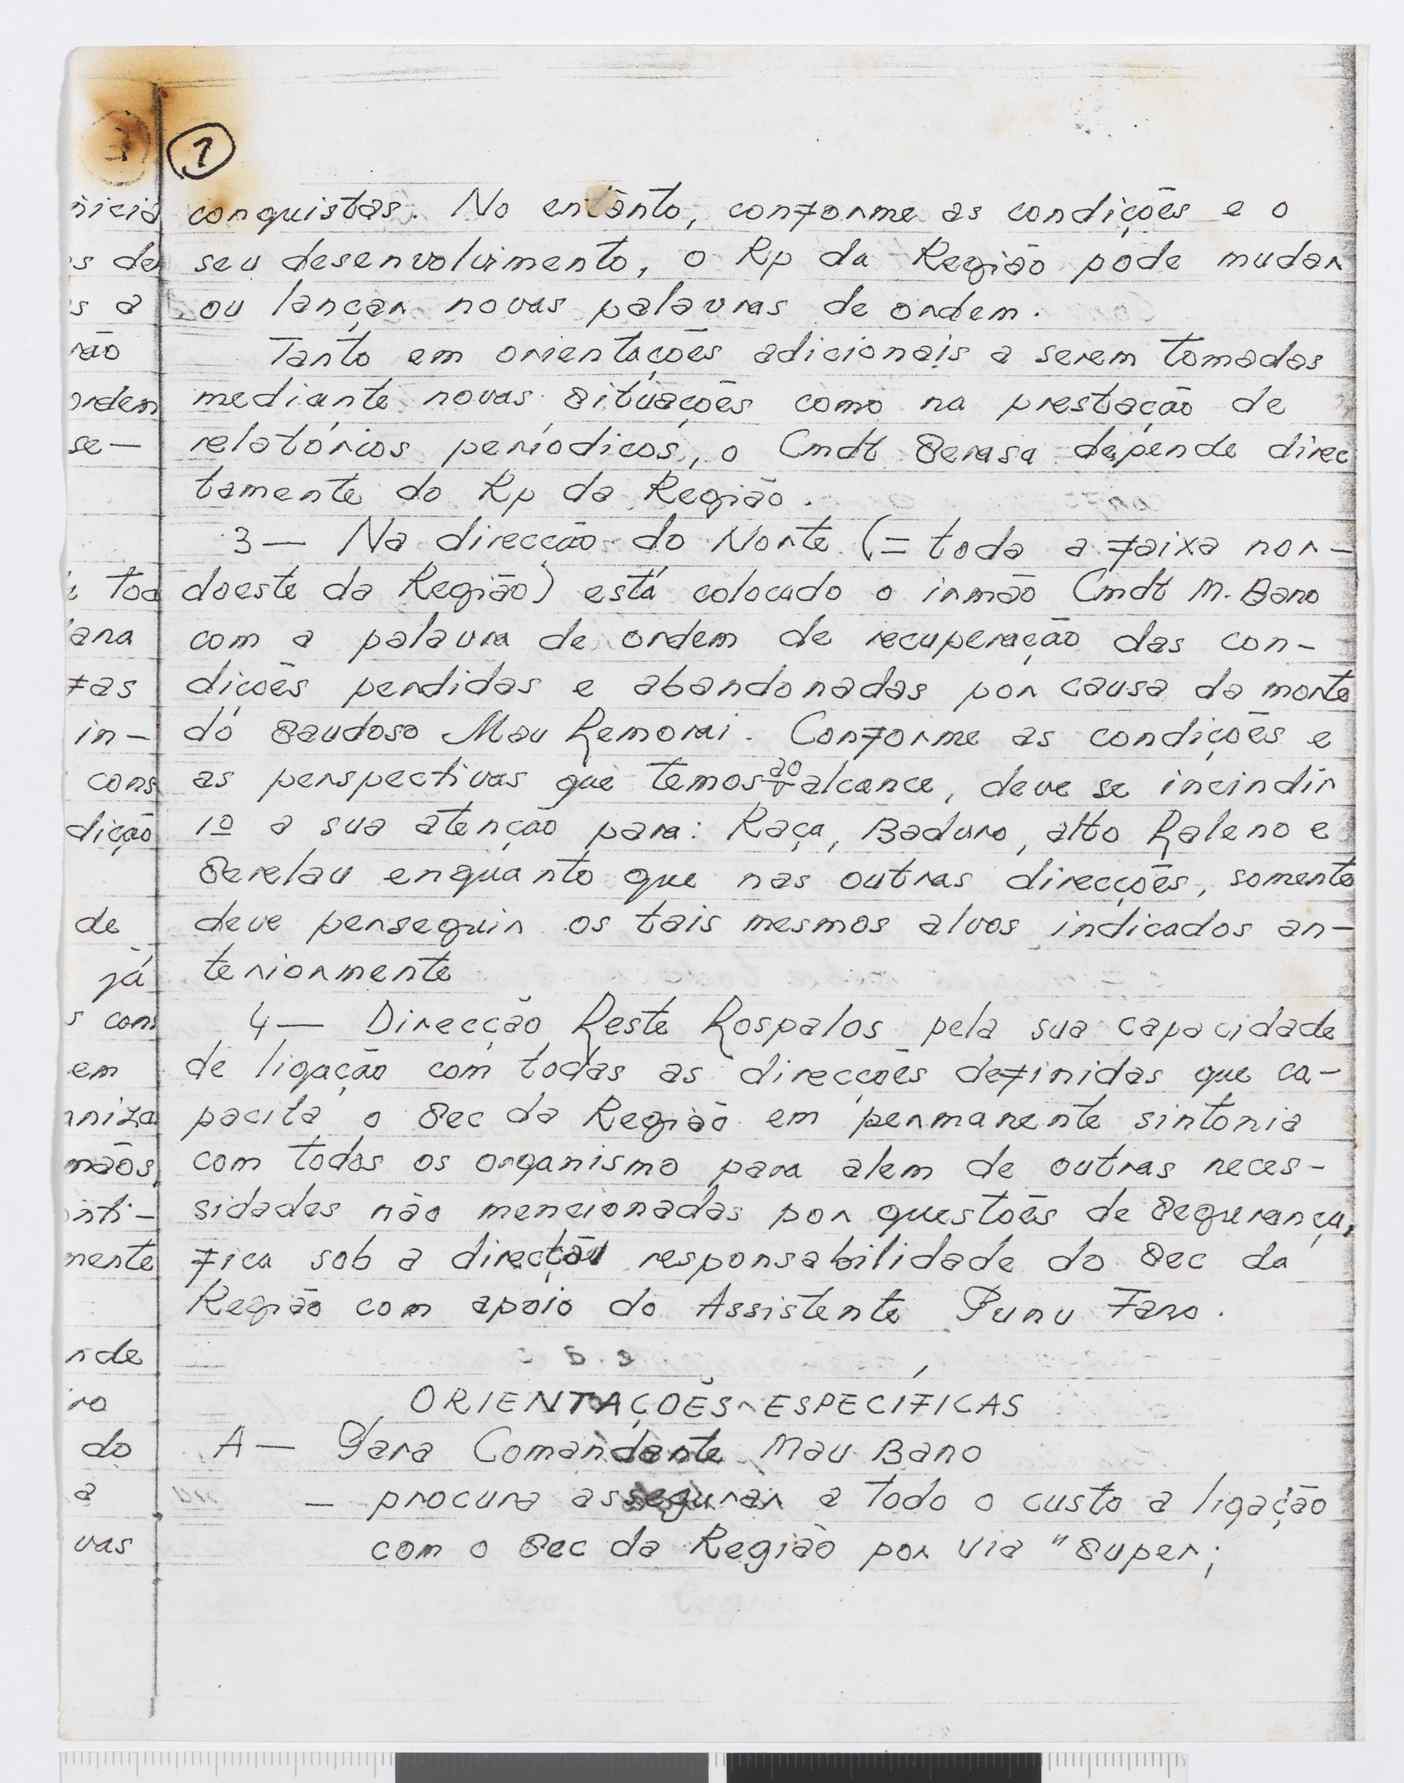 7
conquistas. No entanto, conforme as condições e o
seu desenvolvimento, o Rp da Região pode mudar
ou lançar novas palavras de ordem.
Tanto em orientações adicionais a serem tomadas
mediante novas situações como na prestação de
relatórios períodicos, o Cmdt Serasa depende direc
tamente do Rp da Região.
3 — Na direcção do Norte (= toda a faixa nor-
doeste da Região) está colocado o irmão Cmdt M. Bano
com a palavra de ordem de recuperação das con-
dições perdidas e abandonadas por causa da morte
do Saudoso Mau Remorai. Conforme as condições e
as perspectivas que temos ao alcance, deve se incindir
1º a sua atenção para: Raça, Baduro, alto Raleno e
Serelau enquanto que nas outras direcções, somente
deve perseguir os tais mesmos alvos indicados an-
teriormente
4 — Direcção Reste Rospalos pela sua capacidade
de ligação com todas as direcções definidas que ca-
pacita o Sec da Região em permanente sintonia
com todos os organismo para alem de outras neces-
sidades não mencionadas por questões de Segurança,
fica sob a direcção responsabilidade do Sec da
Região com apoio do Assistente Punu Fano.
ORIENTAÇÕES ESPECÍFICAS
A — Para Comandante Mau Bano
— procura assegurar a todo o custo a ligação
com o Sec da Região por via "Super;
nicia
s de
s a
rão
ordem
se-
toa
ara
fas
in-
cons
dição
de
já
s con
em
niza
mãos,
inti-
mente
nde
ro
do
a
vas